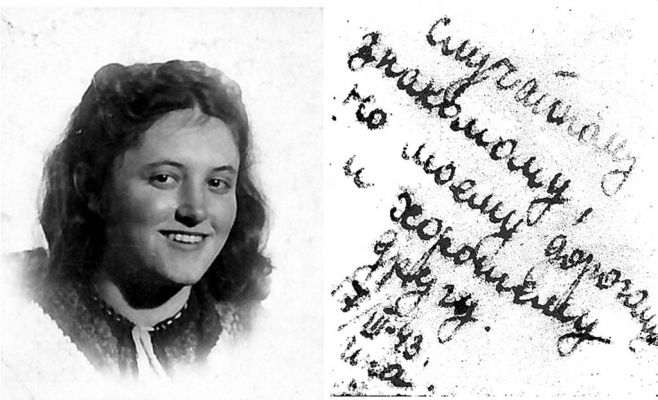 случайному
знакомому,
но моему дорогому
и хорошему
другу.
7/III-43.
И-а.